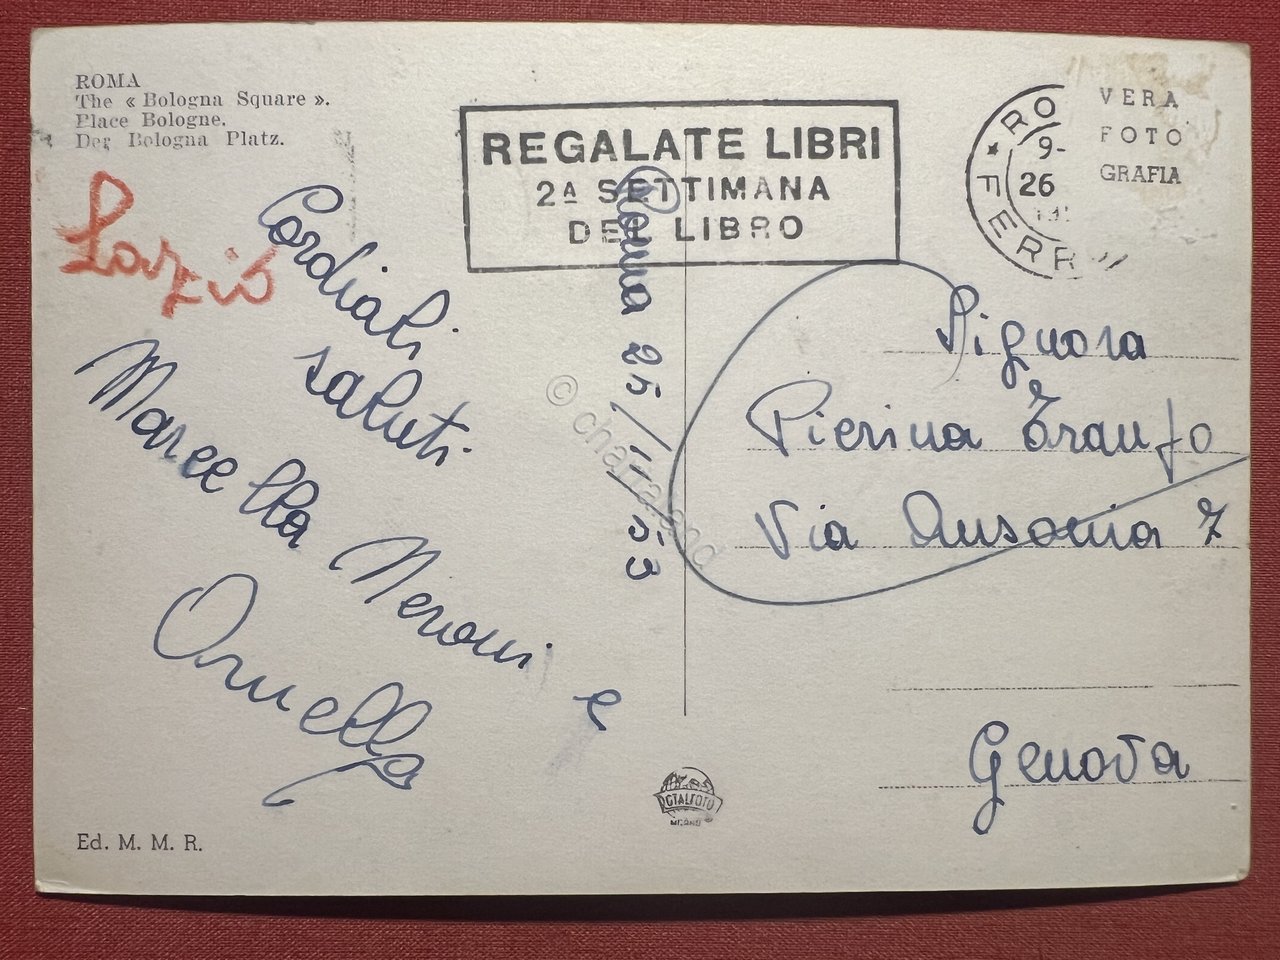 ROMA
The « Bologna Square ».
Place Bologne.
Der Bologna Platz.
REGALATE LIBRI
2ª SETTIMANA
DEL LIBRO
RO
FERR
9-
26
VERA
FOTO
GRAFIA
Lazio
Cordiali
saluti
Marcella Neroni e
Ornella
Roma 25/11/53
Signora
Pierina
Via Ausonia 7
Genova
© chartaland
Ed. M. M. R.